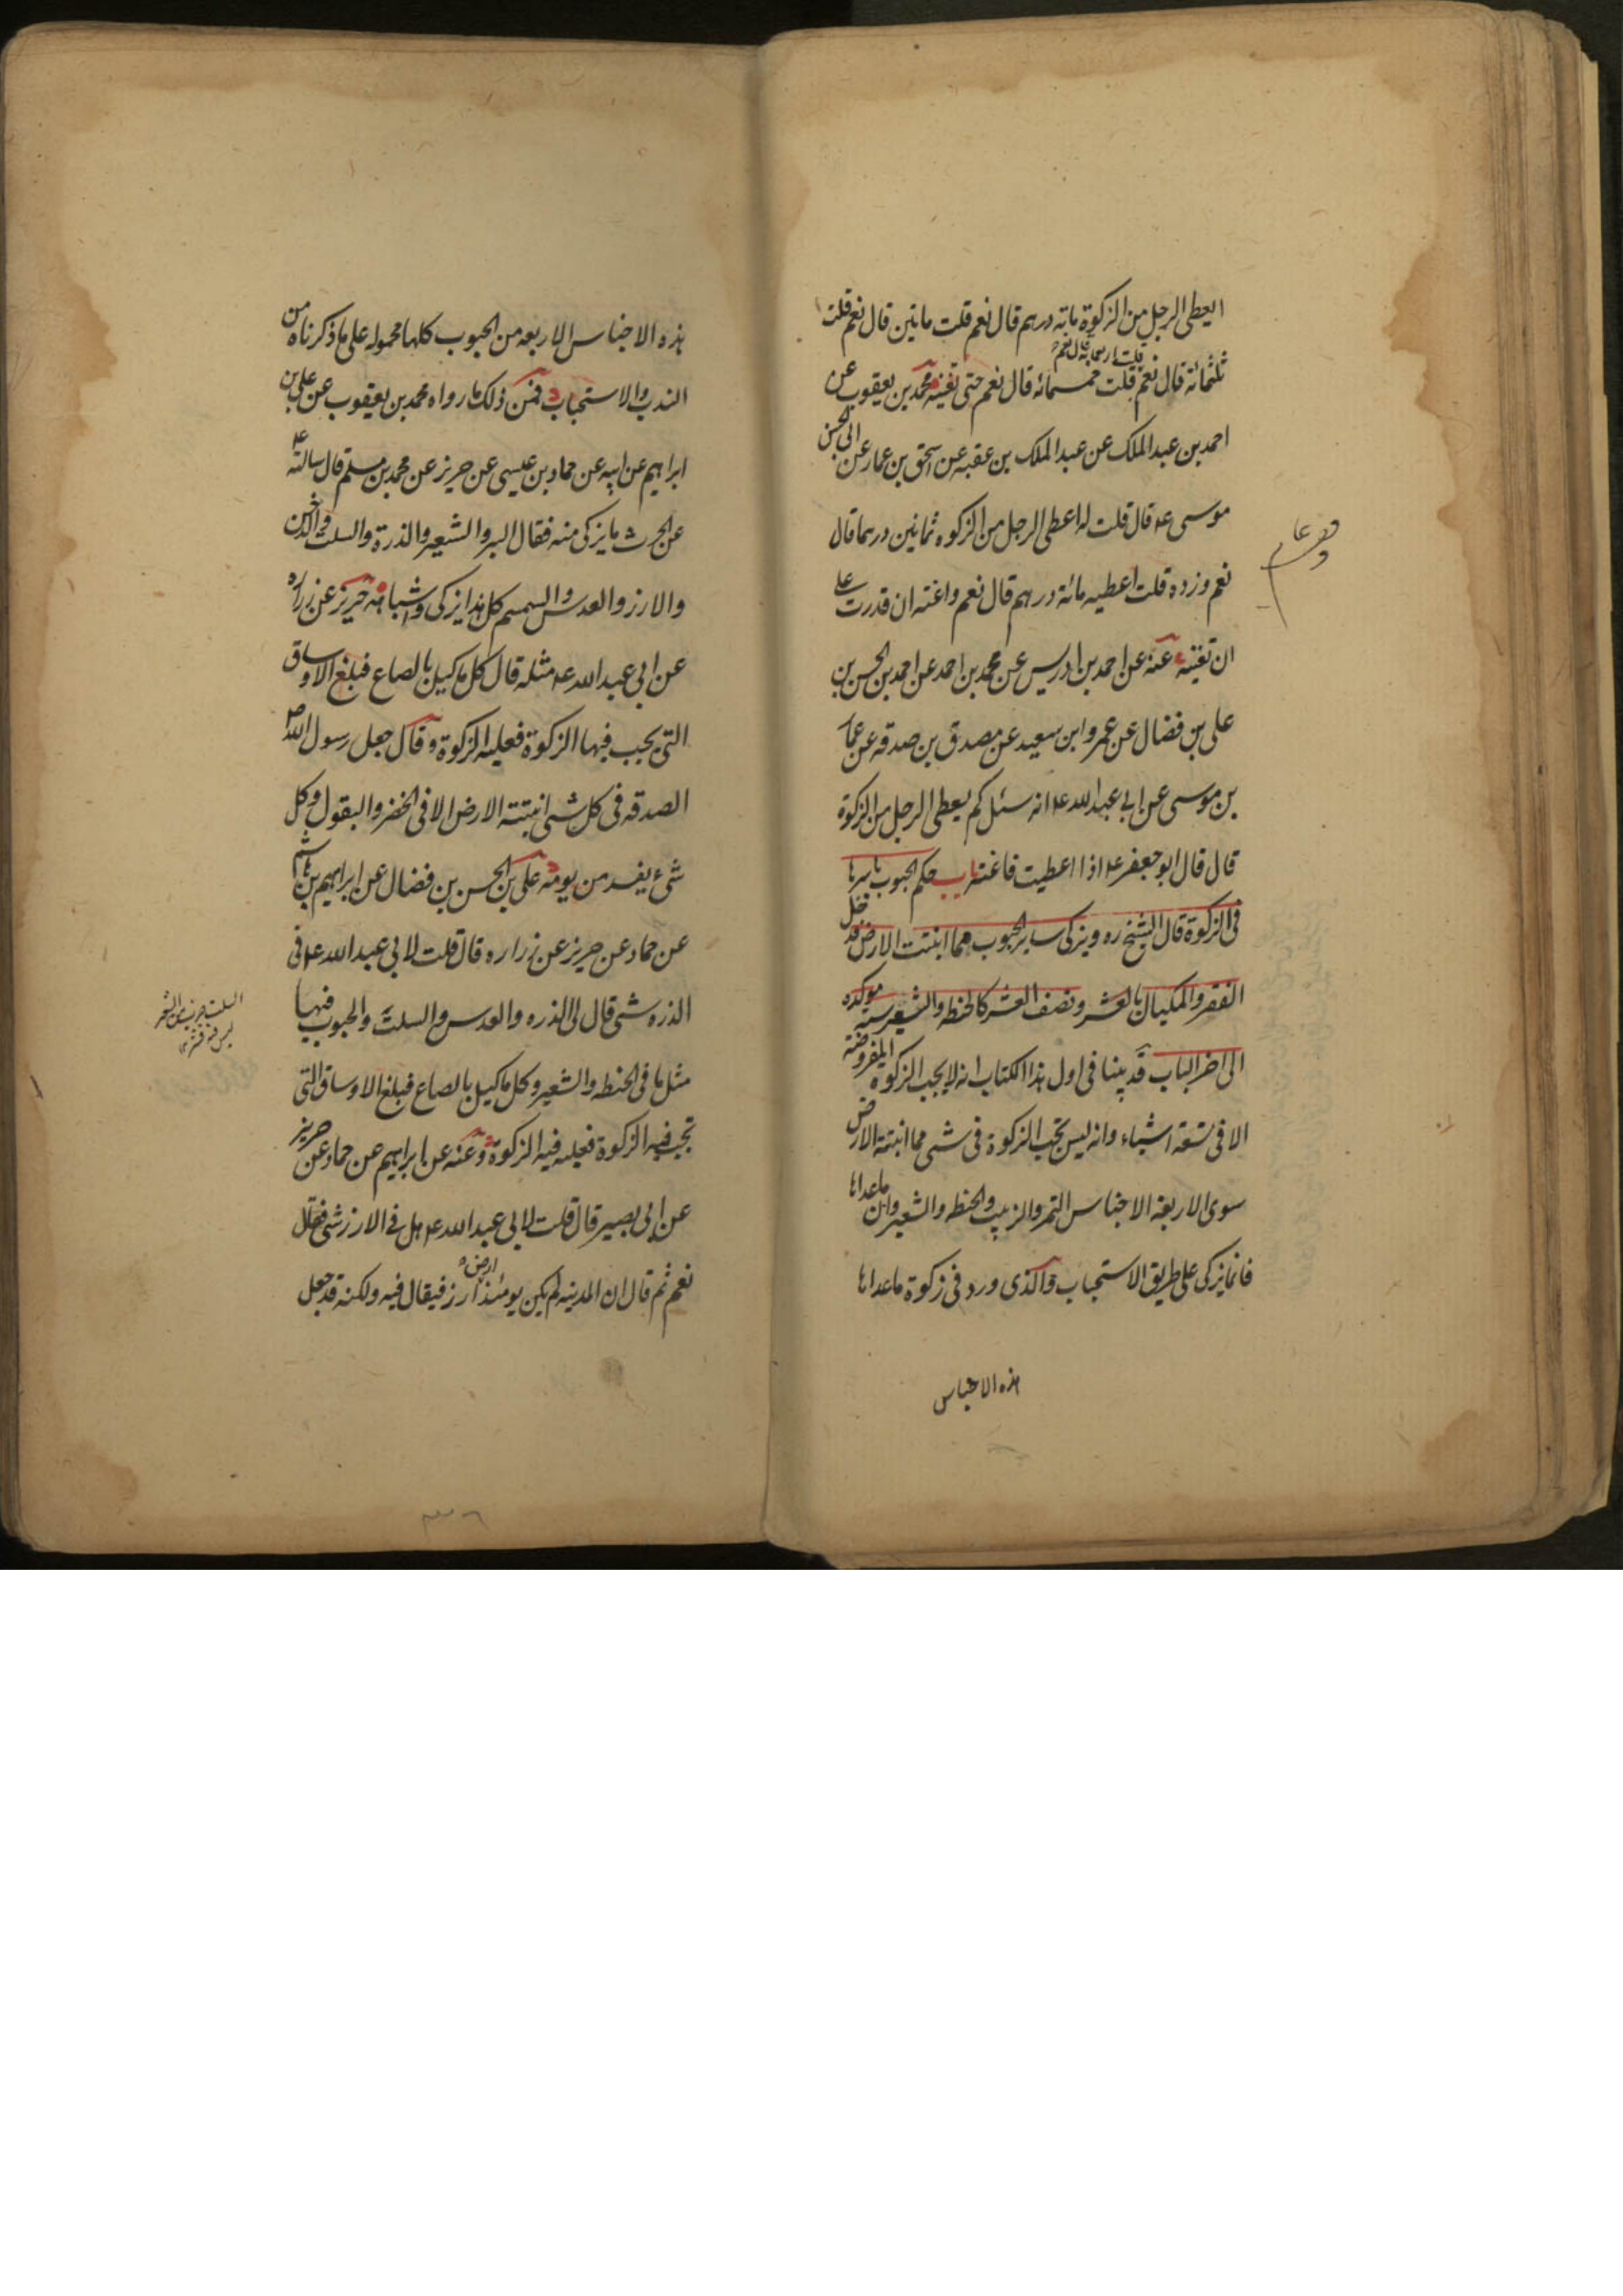 ايعطى الرجل من الزكوة مائة درهم قال نعم قلت مايتين قال نعم قلت
ثلثمائة قال نعم قلت خمسمائه قال نعم حتى تغنيه محمد بن يعقوب عن
قلت اربعمائة قال نعم
احمد بن عبد الملك عن عبد الملك بن عقبه عن اسحق بن عمار عن ابى الحسن
موسى ع قال قلت له اعطى الرجل من الزكوه ثمانين درهما قال
نعم وزده قلت اعطيه مائة درهم قال نعم واغنه ان قدرت على
ان تغنيه عنه عن احمد بن ادريس عن محمد بن احمد عن احمد بن الحسن بن
على بن فضال عن عمرو ابن سعيد عن مصدق بن صدقه عن عمار
بن موسى عن ابى عبد الله ع انه سئل كم يعطى الرجل من الزكوة
قال قال ابو جعفر ع اذا اعطيت فاغنه باب حكم الحبوب باسرها
فى الزكوة قال الشيخ ره ويزكى ساير الحبوب مما انبتت الارض فدخل
القفيز والمكيال بالعشر ونصف العشر كالحنطه والشعير سنه موكده
الى اخر الباب قد بينا فى اول هذا الكتاب انه لا يجب الزكوه المفروضة
الا فى تسعة اشياء وانه ليس تجب الزكوة فى شى مما انبتته الارض
سوى الاربعة الاجناس التمر والزبيب والحنطه والشعير وان ماعداها
فانما يزكى على طريق الاستحباب والذى ورد فى زكوة ماعداها
هذه الاجناس
هذه الاجناس الاربعه من الحبوب كلها محموله على ما ذكرناه من
الندب والاستحباب فمن ذلك ما رواه محمد بن يعقوب عن على بن
ابراهيم عن ابيه عن حماد بن عيسى عن حريز عن محمد بن مسلم قال سالته ع
عن الحرث ما يزكى منه فقال البر والشعير والذرة والسلت والدخن
والارز والعدس والسمسم كل هذا يزكى واشباهه حريز عن زراره
عن ابى عبد الله ع مثله قال كل ما كيل بالصاع فبلغ الاوساق
التى يجب فيها الزكوة فعليه الزكوة وقال جعل رسول الله ص
الصدقه فى كل شى انبتته الارض الا فى الخضر والبقول وكل
شىء يفسد من يومه على بن الحسن بن فضال عن ابراهيم بن هاشم
عن حماد عن حريز عن زراره قال قلت لابى عبد الله ع فى
الذره شى قال لى الذره والعدس والسلت والحبوب فيها
مثل ما فى الحنطه والشعير وكل ما كيل بالصاع فبلغ الاوساق التى
تجب فيه الزكوة فعليه فيه الزكوة وعنه عن ابراهيم عن حماد عن حريز
عن ابى بصير قال قلت لابى عبد الله ع هل فى الارز شى فقال
نعم ثم قال ان المدينه لم يكن يومئذ ارض ارز فيقال فيه ولكنه قد جعل
السلت ضرب من الشعير
ليس فيه قشر